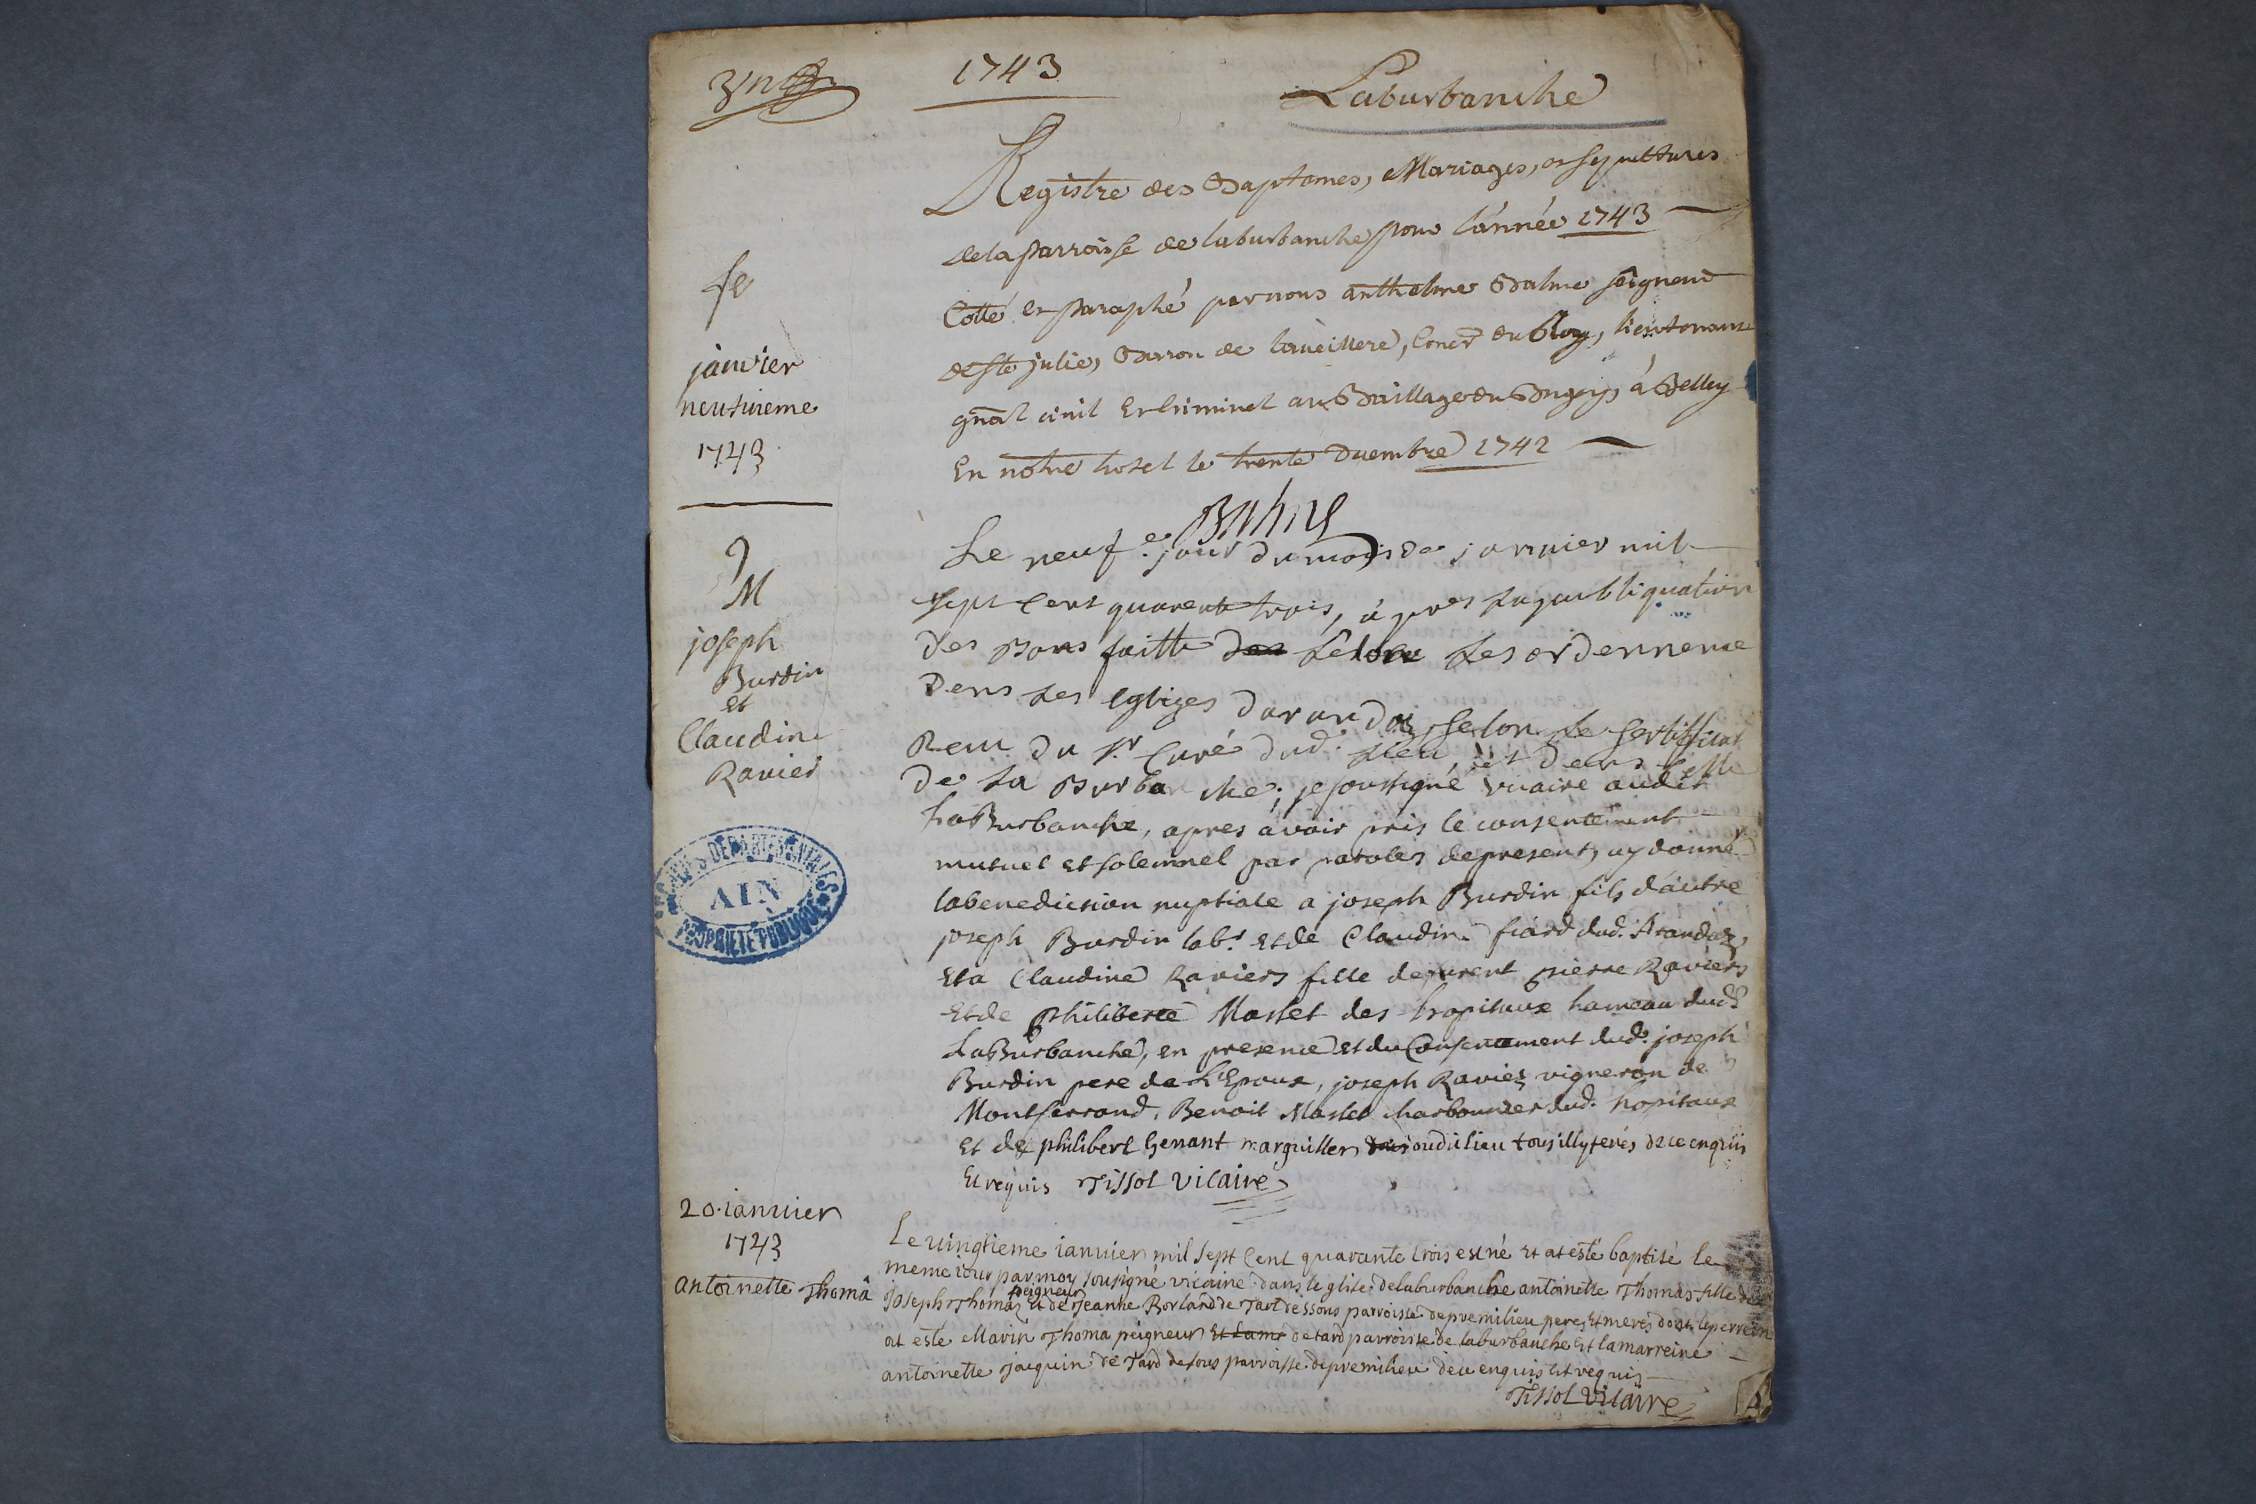 1743
Laburbanche
Registre des Baptemes, Mariages, et sepultures
de la parroisse de laburbanche pour l'année 1743
Cotté et paraphé par nous anthelme Balme seigneur
de ste julie, Barron de
gñal civil et criminel au Baillage du Bugey à Belley
En notre hotel le trente Decembre 1742
Balme
janvier
neuvieme
1743
9
M
joseph
Burdin
et
Claudine
Ravier
Le neuf.e jour du mois de janvier mil
sept cent quarente trois, à pres la publiquation
des Bans faitte des selon les ordennence
Dens les eglizes darandas, selon le sertifficat
Remi du sr. Curé dud. lieu, et dens selle
de La Burbanche; je soussigné vicaire audit
LaBurbanche, apres avoir pris le consentement
mutuel et solemnel par paroles de present, ay donné
la benediction nuptiale a joseph Burdin fils d'autre
joseph Burdin labr. et de Claudine fiard dud. Arandaz,
et a Claudine Raviers fille de furent pierre Raviers
et de philiberte Maslet des hopitaux hameau dud.
LaBurbanche, en presence et du Consentement dud. joseph
Burdin pere de L'Epoux, joseph Ravier vigneron de
Montferrand, Benoit Maslet charbonnier dud. hopitaux
et de philibert Genant marguiller dudit lieu tous illyterés de ce enquis
et requis Tissot vicaire
20. ianvier
1743
antoinette Thomâ
Le vingtieme ianvier mil sept Cent quarante trois est né et at esté baptisé le
meme iour par moy sousigné vicaire dans leglise de laburbanche antoinette Thomas fille de
peigneur
joseph Thomas et de Jeanne Borland de Tart dessous parroisse de premilieu pere et mere dont le perrein
at esté Marin Thoma peigneur de tard parroisse de laburbanche et la marreine
antoinette jacquin de Tard desous parroisse de premilieu de ce enquis et requis
Tissot vicaire
ARCHIVES DÉPARTEMENTALES
AIN
PROPRIÉTÉ PUBLIQUE